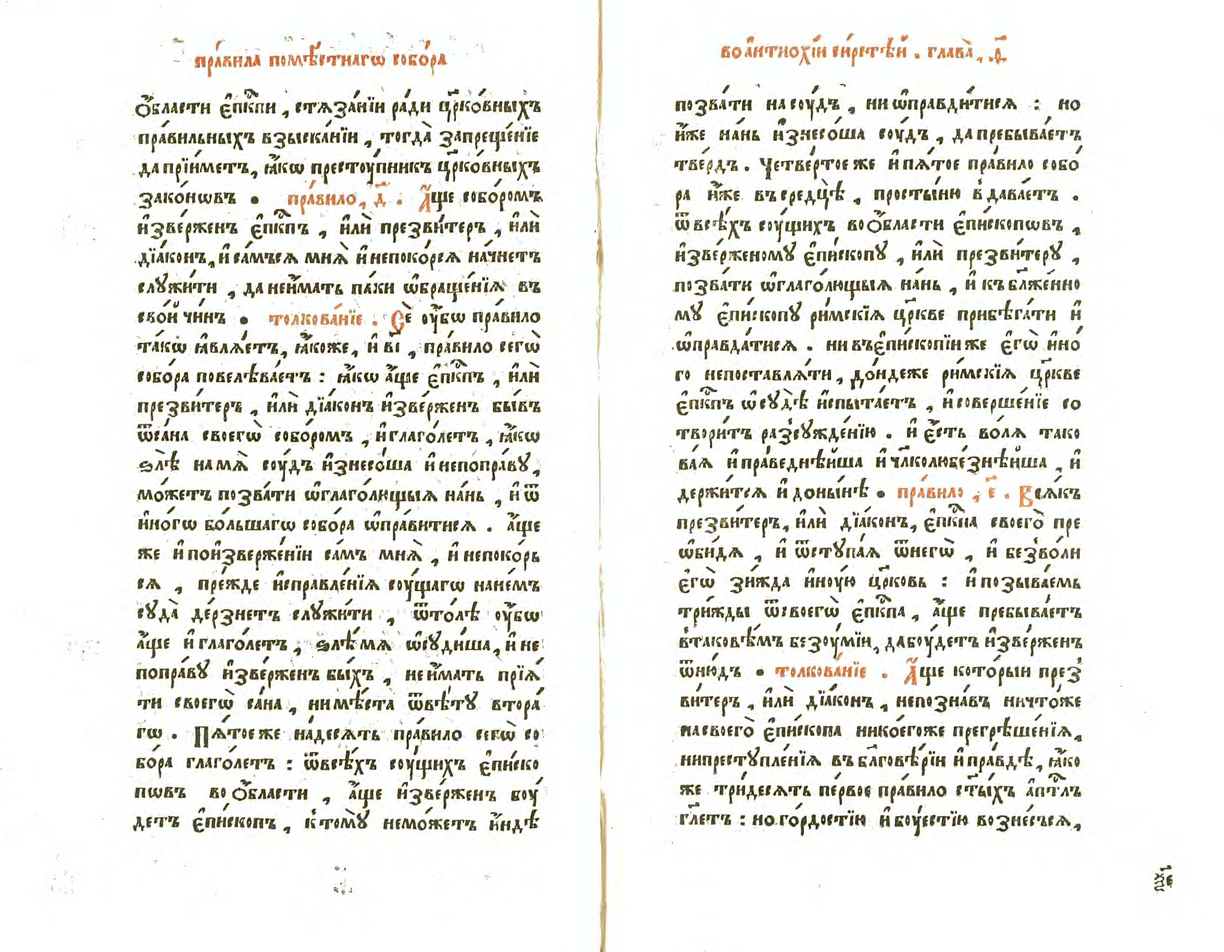 пра́вила помѣ́стнагѡ собо́ра
Ѻ҆́бласти є҆пⷭ҇кпи , стѧза́нїи ра́ди цр҃ко́вныхъ
пра́вильныхъ взыска́нїи , тогда̀ запреще́нїе
да прїи́метъ , ꙗ҆́кѡ престꙋ́пникъ цр҃ко́вныхъ
зако́нѡвъ • пра́вило , д҃ . А҆́ще собо́ромъ
и҆зве́рженъ є҆пⷭ҇кпъ , и҆лѝ презви́теръ , и҆лѝ
дїа́конъ , и҆ са́мъсѧ мнѧ̀ и҆ непокорсѧ̀ на́чнетъ
слꙋжи́ти , да неи҆́мать па́ки ѡ҆браще́нїѧ въ
сво́й чи́нъ • толкова́нїе . Сѐ ᲂу҆́бѡ пра́вило
та́кѡ ꙗ҆влѧ́етъ , ꙗ҆́коже , и҆ в҃і , пра́вило сегѡ̀
собо́ра повелѣва́етъ : ꙗ҆́кѡ а҆́ще є҆пⷭ҇кпъ , и҆лѝ
презви́теръ , и҆лѝ дїа́конъ и҆зве́рженъ бы́въ
ѿса́на своегѡ̀ собо́ромъ , и҆ глаго́летъ , ꙗ҆́кѡ
ѕлѣ̀ на мѧ̀ сꙋ́дъ и҆знесо́ша и҆ непопра́вꙋ ,
мо́жетъ позва́ти ѡ҆глаго́лющыѧ на́нь , и҆ ѿ
и҆но́гѡ бо́льшагѡ собо́ра ѡ҆пра́витисѧ . а҆́ще
же и҆ поизверже́нїи са́мъ мнѧ̀ , и҆ непокорь
сѧ , пре́жде и҆справле́нїѧ сꙋ́щагѡ нане́мъ
сꙋда̀ де́рзнетъ слꙋжи́ти , ѿто́лѣ ᲂу҆́бѡ
а҆́ще и҆ глаго́летъ , ѕлѣ́ мѧ ѡ҆сꙋди́ша , и҆ не
попра́вꙋ и҆зве́рженъ бы́хъ , неи҆́мать прїѧ́
ти своегѡ̀ са́на , ни мѣ́ста ѿвѣ́тꙋ втора́
гѡ . Пѧ́тоеже на́десѧть пра́вило сегѡ̀ со
бо́ра глаго́летъ : ѿвсѣ́хъ сꙋ́щихъ є҆пи́ско
пѡвъ во Ѻ҆́бласти , а҆́ще и҆зве́рженъ бꙋ́
детъ є҆пи́скопъ , к томꙋ̀ немо́жетъ и҆́ндѣ
во а҆нтїохі́и си́рстѣй . глава̀ , д҃
позва́ти на сꙋ́дъ , ни ѡ҆правди́тисѧ : но
и҆́же на́нь и҆знесо́ша сꙋ́дъ , да пребыва́етъ
тве́рдъ . Четве́ртоеже и҆ пѧ́тое пра́вило собо́
ра и҆́же въ средцѣ̀ , просты́ню вдава́етъ .
ѿвсѣ́хъ сꙋ́щихъ во Ѻ҆́бласти є҆пи́скопѡвъ ,
и҆зве́рженомꙋ є҆пи́скопꙋ , и҆лѝ презви́терꙋ ,
позва́ти ѡ҆глаго́лющыѧ на́нь , и҆ къ бл҃же́нно
мꙋ є҆пи́скопꙋ ри́мскїѧ цр҃кве прибѣга́ти и҆
ѡ҆правда́тисѧ . ни въ є҆писко́пїиже є҆гѡ̀ и҆но́
го непоставлѧ́ти , до́ндеже ри́мскїѧ цр҃кве
є҆пⷭ҇кпъ ѡ҆сꙋ́дѣ и҆спыта́етъ , и҆ соверше́нїе со
твори́тъ разсꙋжде́нїю . и҆ є҆́сть во́лѧ тако
ва́ѧ и҆ пра́веднѣйша и҆ чл҃колюбе́знѣйша , и҆
держи́тсѧ и҆ доны́нѣ • пра́вило , є҃ . Всѧ́къ
презви́теръ , и҆лѝ дїа́конъ , є҆пⷭ҇кпа своего̀ пре
ѡ҆би́дѧ , и҆ ѿстꙋпа́ѧ ѿнегѡ̀ , и҆ безво́ли
є҆гѡ̀ зи́жда и҆нꙋ́ю цр҃ковь : и҆ позыва́емь
три́жды ѿсвоегѡ̀ є҆пⷭ҇кпа , а҆́ще пребыва́етъ
втаковѣ́мъ безꙋ́мїи , да бꙋ́детъ и҆зве́рженъ
ѿню́дъ • толкова́нїе . А҆́ще кото́рыи през
витеръ , и҆лѝ дїа́конъ , непозна́въ ничто́же
на своего̀ є҆пи́скопа нико́егоже прегрѣше́нїѧ ,
ни престꙋпле́нїѧ въ бл҃говѣ́рїи и҆ пра́вдѣ , ꙗ҆́ко
же три́десѧть пе́рвое пра́вило ст҃ы́хъ а҆пⷭ҇тлъ
гл҃етъ : но го́рдостїю и҆ бꙋ́естїю возне́сьсѧ ,